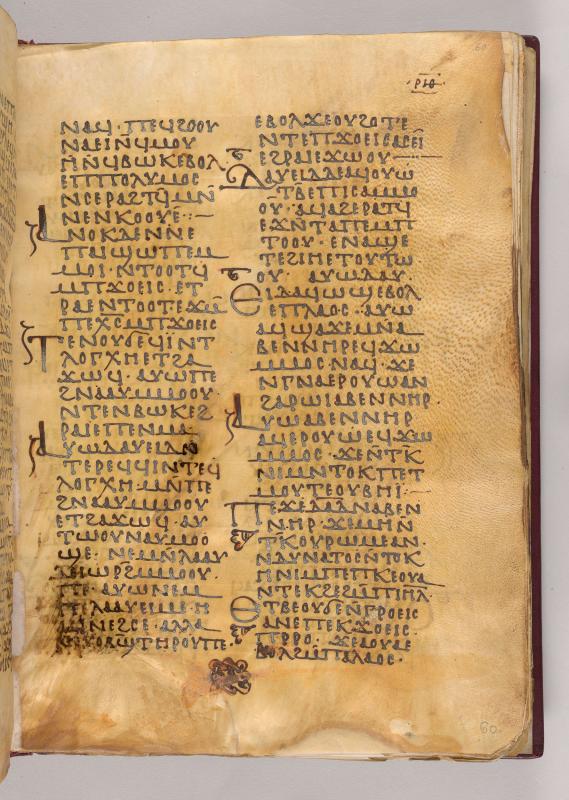 ⲣⲓⲑ
60
ⲛⲁϥ· ⲡⲉϥϩⲟⲟⲩ
ⲛⲁⲉⲓⲛ̄ϥⲙⲟⲩ
ⲏⲛ̄ϥⲃⲱⲕⲉⲃⲟⲗ
ⲉⲡⲡⲟⲗⲩⲙⲟⲥ
ⲛⲥⲉⲣⲁϩⲧϥ̄ⲙⲛ̄
ⲛⲉⲛⲕⲟⲟⲩⲉ:—
ⲁⲛⲟⲕⲇⲉⲛⲛⲉ
ⲡⲁⲓϣⲱⲡⲉⲙ
ⲙⲟⲓ· ⲛⲧⲟⲟⲧϥ
ⲙⲡϫⲟⲉⲓⲥ· ⲉⲧ
ⲣⲁⲉⲛⲧⲟⲟⲧⲉϫⲙ̄
ⲡⲉⲭⲥ̄ⲙⲡϫⲟⲉⲓⲥ
ⲧⲉⲛⲟⲩϭⲉϥⲓⲛⲧ
ⲗⲟⲅⲭⲏⲉⲧϩⲁ
ϫⲱϥ· ⲁⲩⲱⲡⲉ
ϩⲛⲁⲁⲩⲙⲙⲟⲟⲩ
ⲛⲧⲉⲛⲃⲱⲕⲉϩ
ⲣⲁⲓⲉⲡⲉⲛⲙⲁ
ⲁⲩⲱⲇⲁⲩⲉⲓⲇⲁ
ⲧⲉⲣⲉϥϥⲓⲛⲧⲉϥ
ⲗⲟⲅⲭⲏ· ⲙⲛ̄ⲡⲉ
ϩⲛⲁⲁⲩⲙⲙⲟⲟⲩ
ⲉⲧϩⲁϫⲱϥ· ⲁⲩ
ⲧⲱⲟⲩⲛⲁⲩⲙⲟⲟ
ϣⲉ· ⲛⲉⲙⲛ̄ⲗⲁⲁⲩ
ⲉⲓⲱⲣϩⲙⲙⲟⲟⲩ
ⲡⲉ· ⲁⲩⲱⲛⲉⲙ
ⲡⲉⲗⲁⲁⲩⲉⲓⲙⲉ· ⲏ
ⲛⲉϩⲥⲉ· ⲁⲗⲗⲁ
ⲟⲃϣ̄ⲧⲏⲣⲟⲩⲡⲉ·
ⲉⲃⲟⲗϫⲉⲟⲩϩⲟⲧⲉ
ⲛⲧⲉⲡϫⲟⲉⲓⲥⲁⲥⲉⲓ
ⲉϩⲣⲁⲓⲉϫⲱⲟⲩ·—
ⲇⲁⲩⲉⲓⲇⲇⲉⲁϥⲟⲩⲱ
ⲧⲃ̄ⲉⲡⲓⲥⲁⲙⲙⲟ
ⲟⲩ· ⲁϥⲁϩⲉⲣⲁⲧϥ
ⲉϫⲛ̄ⲧⲁⲡⲉⲙⲡ
ⲧⲟⲟⲩ· ⲉⲛⲁϣⲉ
ⲧⲉϩⲓⲏⲉⲧⲟⲩⲧⲱ
ⲟⲩ· ⲁⲩⲱⲇⲁⲩ
ⲉⲓⲇⲁϥⲱϣⲉⲃⲟⲗ
ⲉⲡⲗⲁⲟⲥ· ⲁⲩⲱ
ⲁϥϣⲁϫⲉⲙⲛ̄ⲁ
ⲃⲉⲛⲛⲏⲣⲉϥϫⲱ
ⲙⲙⲟⲥⲛⲁϥ· ϫⲉ
ⲛⲅⲛⲁⲉⲣⲟⲩⲱⲁⲛ
ϩⲁⲣⲱⲓⲁⲃⲉⲛⲛⲏⲣ·
ⲁⲩⲱⲁⲃⲉⲛⲛⲏⲣ
ⲁϥⲉⲣⲟⲩⲱⲉϥϫⲱ
ⲙⲙⲟⲥ· ϫⲉⲛⲧⲕ̄
ⲛⲓⲙⲛⲧⲟⲕⲡⲉⲧ
ⲙⲟⲩⲧⲉⲟⲩⲃⲏⲓ·
ⲡⲉϫⲉⲇⲁⲇⲛⲁⲃⲉⲛ
ⲛⲏⲣ· ϫⲉⲙⲏⲛ̄
ⲧⲕⲟⲩⲣⲱⲙⲉⲁⲛ·
ⲛⲇⲩⲛⲁⲧⲟⲥⲛ̄ⲧⲟⲕ
ⲏⲛⲓⲙⲡⲉⲧⲕⲉⲟⲩⲁ
ⲛⲧⲉⲕϩⲉϩⲙ̄ⲡⲓⲏⲗ·
ⲉⲧⲃⲉⲟⲩϭⲉⲛ̄ⲅⲣⲟⲉⲓⲥ
ⲁⲛⲉⲡⲉⲕϫⲟⲉⲓⲥ·
ⲡⲣ̄ⲣⲟ· ϫⲉⲁⲟⲩⲁⲉ
ⲃⲟⲗϩⲙ̄ⲡⲗⲁⲟⲥ·
60